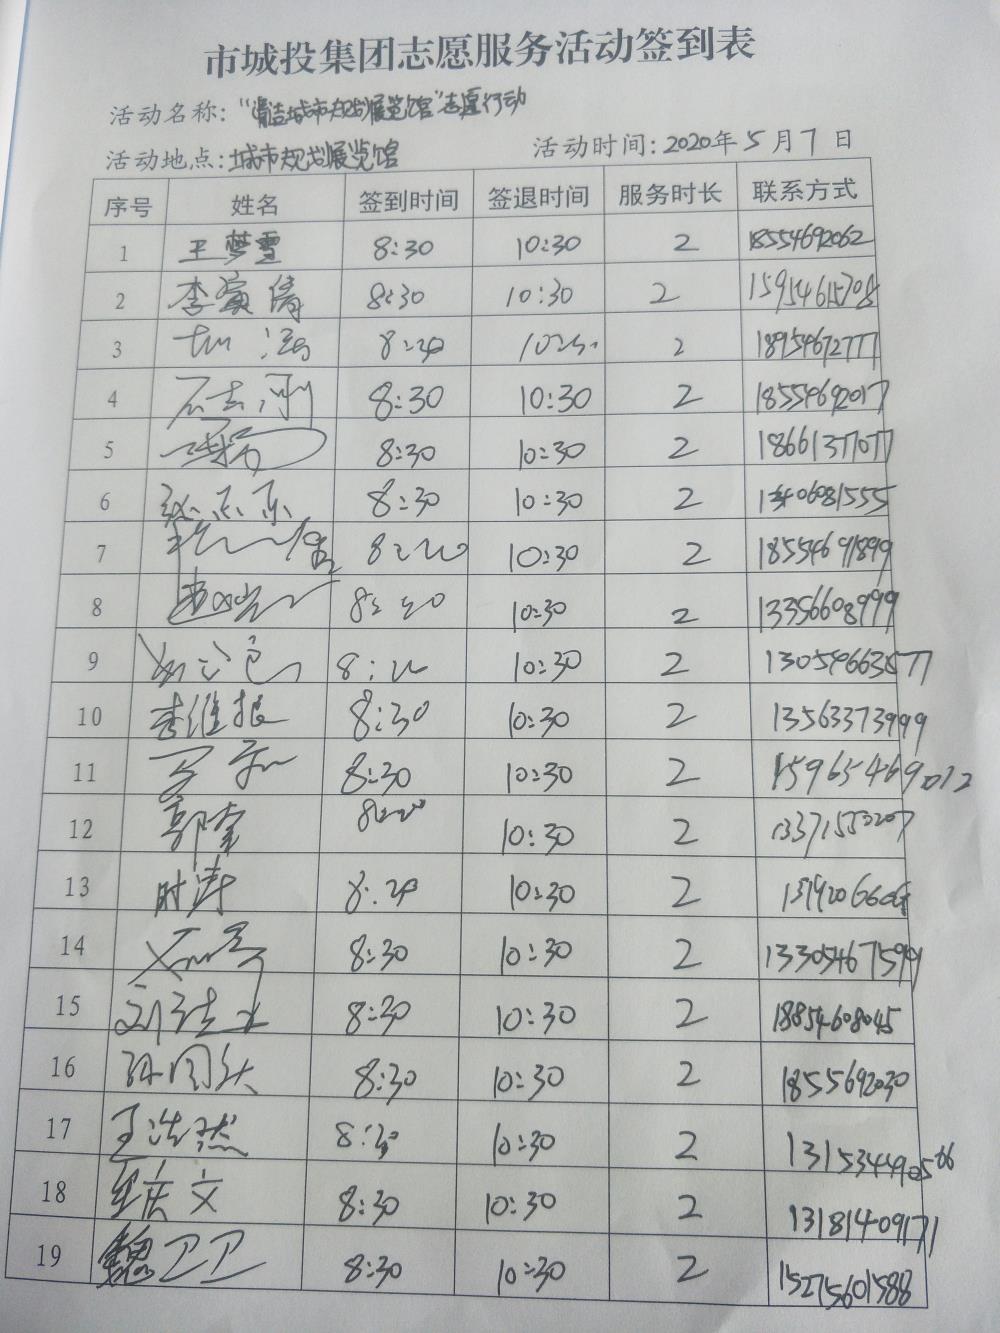 市城投集团志愿服务活动签到表
活动名称:“清洁城市规划展览馆”志愿行动
活动地点:城市规划展览馆 活动时间:2020年5月7日
序号 姓名 签到时间 签退时间 服务时长 联系方式
1 王梦雪 8:30 10:30 2 18554692062
2 李寅倩 8:30 10:30 2 15954615708
3 8:30 10:30 2 18954672777
4 石志刚 8:30 10:30 2 18554692017
5 8:30 10:30 2 18661377077
6 8:30 10:30 2
7 8:30 10:30 2 18554691899
8 8:30 10:30 2 13356608999
9 8:30 10:30 2
10 李维振 8:30 10:30 2 13563373999
11 8:30 10:30 2 15965469012
12 郭奎 8:30 10:30 2 13371553207
13 时涛 8:30 10:30 2
14 8:30 10:30 2 13305467599
15 8:30 10:30 2 18854608045
16 8:30 10:30 2 18555692030
17 王浩然 8:30 10:30 2 13153449056
18 8:30 10:30 2 13181409171
19 魏卫卫 8:30 10:30 2 15275601588